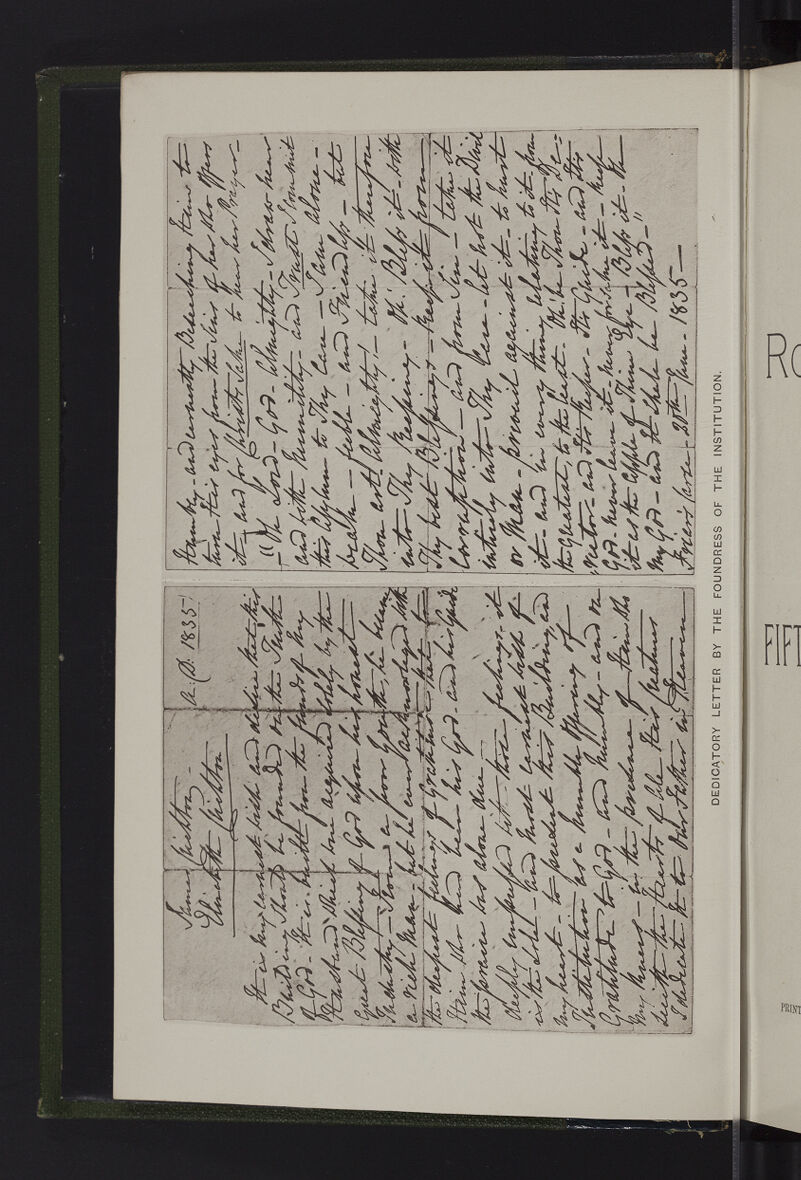 James Nichton -
Elizabeth Nichton
A.D. 1835
It is my earnest wish and desire that this
Building should be founded in the Faith
of God - It is built from the funds of my
Husband which were acquired solely by the
Great Blessing of God upon his honest
Industry - From a poor Youth, he became
a rich Man - but he ever acknowledged with
the deepest feelings of Gratitude that to
Him who had been his God and his Guide
the praise was alone due -
Deeply impressed with those feelings, it
is the wish - and most earnest wish of
my heart - to present this Building and
Institution as a humble offering of
Gratitude to God - and humbly - and on
my knees - in the presence of Him who
seeth the hearts of all His creatures
I dedicate it to Our Father in Heaven
Humbly - and earnestly Beseeching Him to
turn His eyes from the Sins of her who offers
it and for Christ's Sake to hear her Prayer -
"Oh Lord - God - Almighty - I draw near
and with Humility - and Trust I commit
this Asylum to Thy Care - I am alone -
weak - feeble - and Friendless - but
Thou art Almighty! - take it therefore
into Thy Keeping - Oh! Bless it with
Thy best Blessings - Keep it from
Corruption - and from Sin - take it
entirely into Thy Care - let not the Devil
or Man - prevail against it - to hurt
it - and in every thing relating to it from
the Greatest, to the least - Oh! be Thou Its Di-
rector - and Its Keeper - Its Guide - and Its
God - never leave it - never forsake it - keep
it as the apple of Thine Eye - Bless it - Oh
my God - and it shall be Blessed -"
20th June - 1835 -
DEDICATORY LETTER BY THE FOUNDRESS OF THE INSTITUTION.
RO
FIFT
PRINT